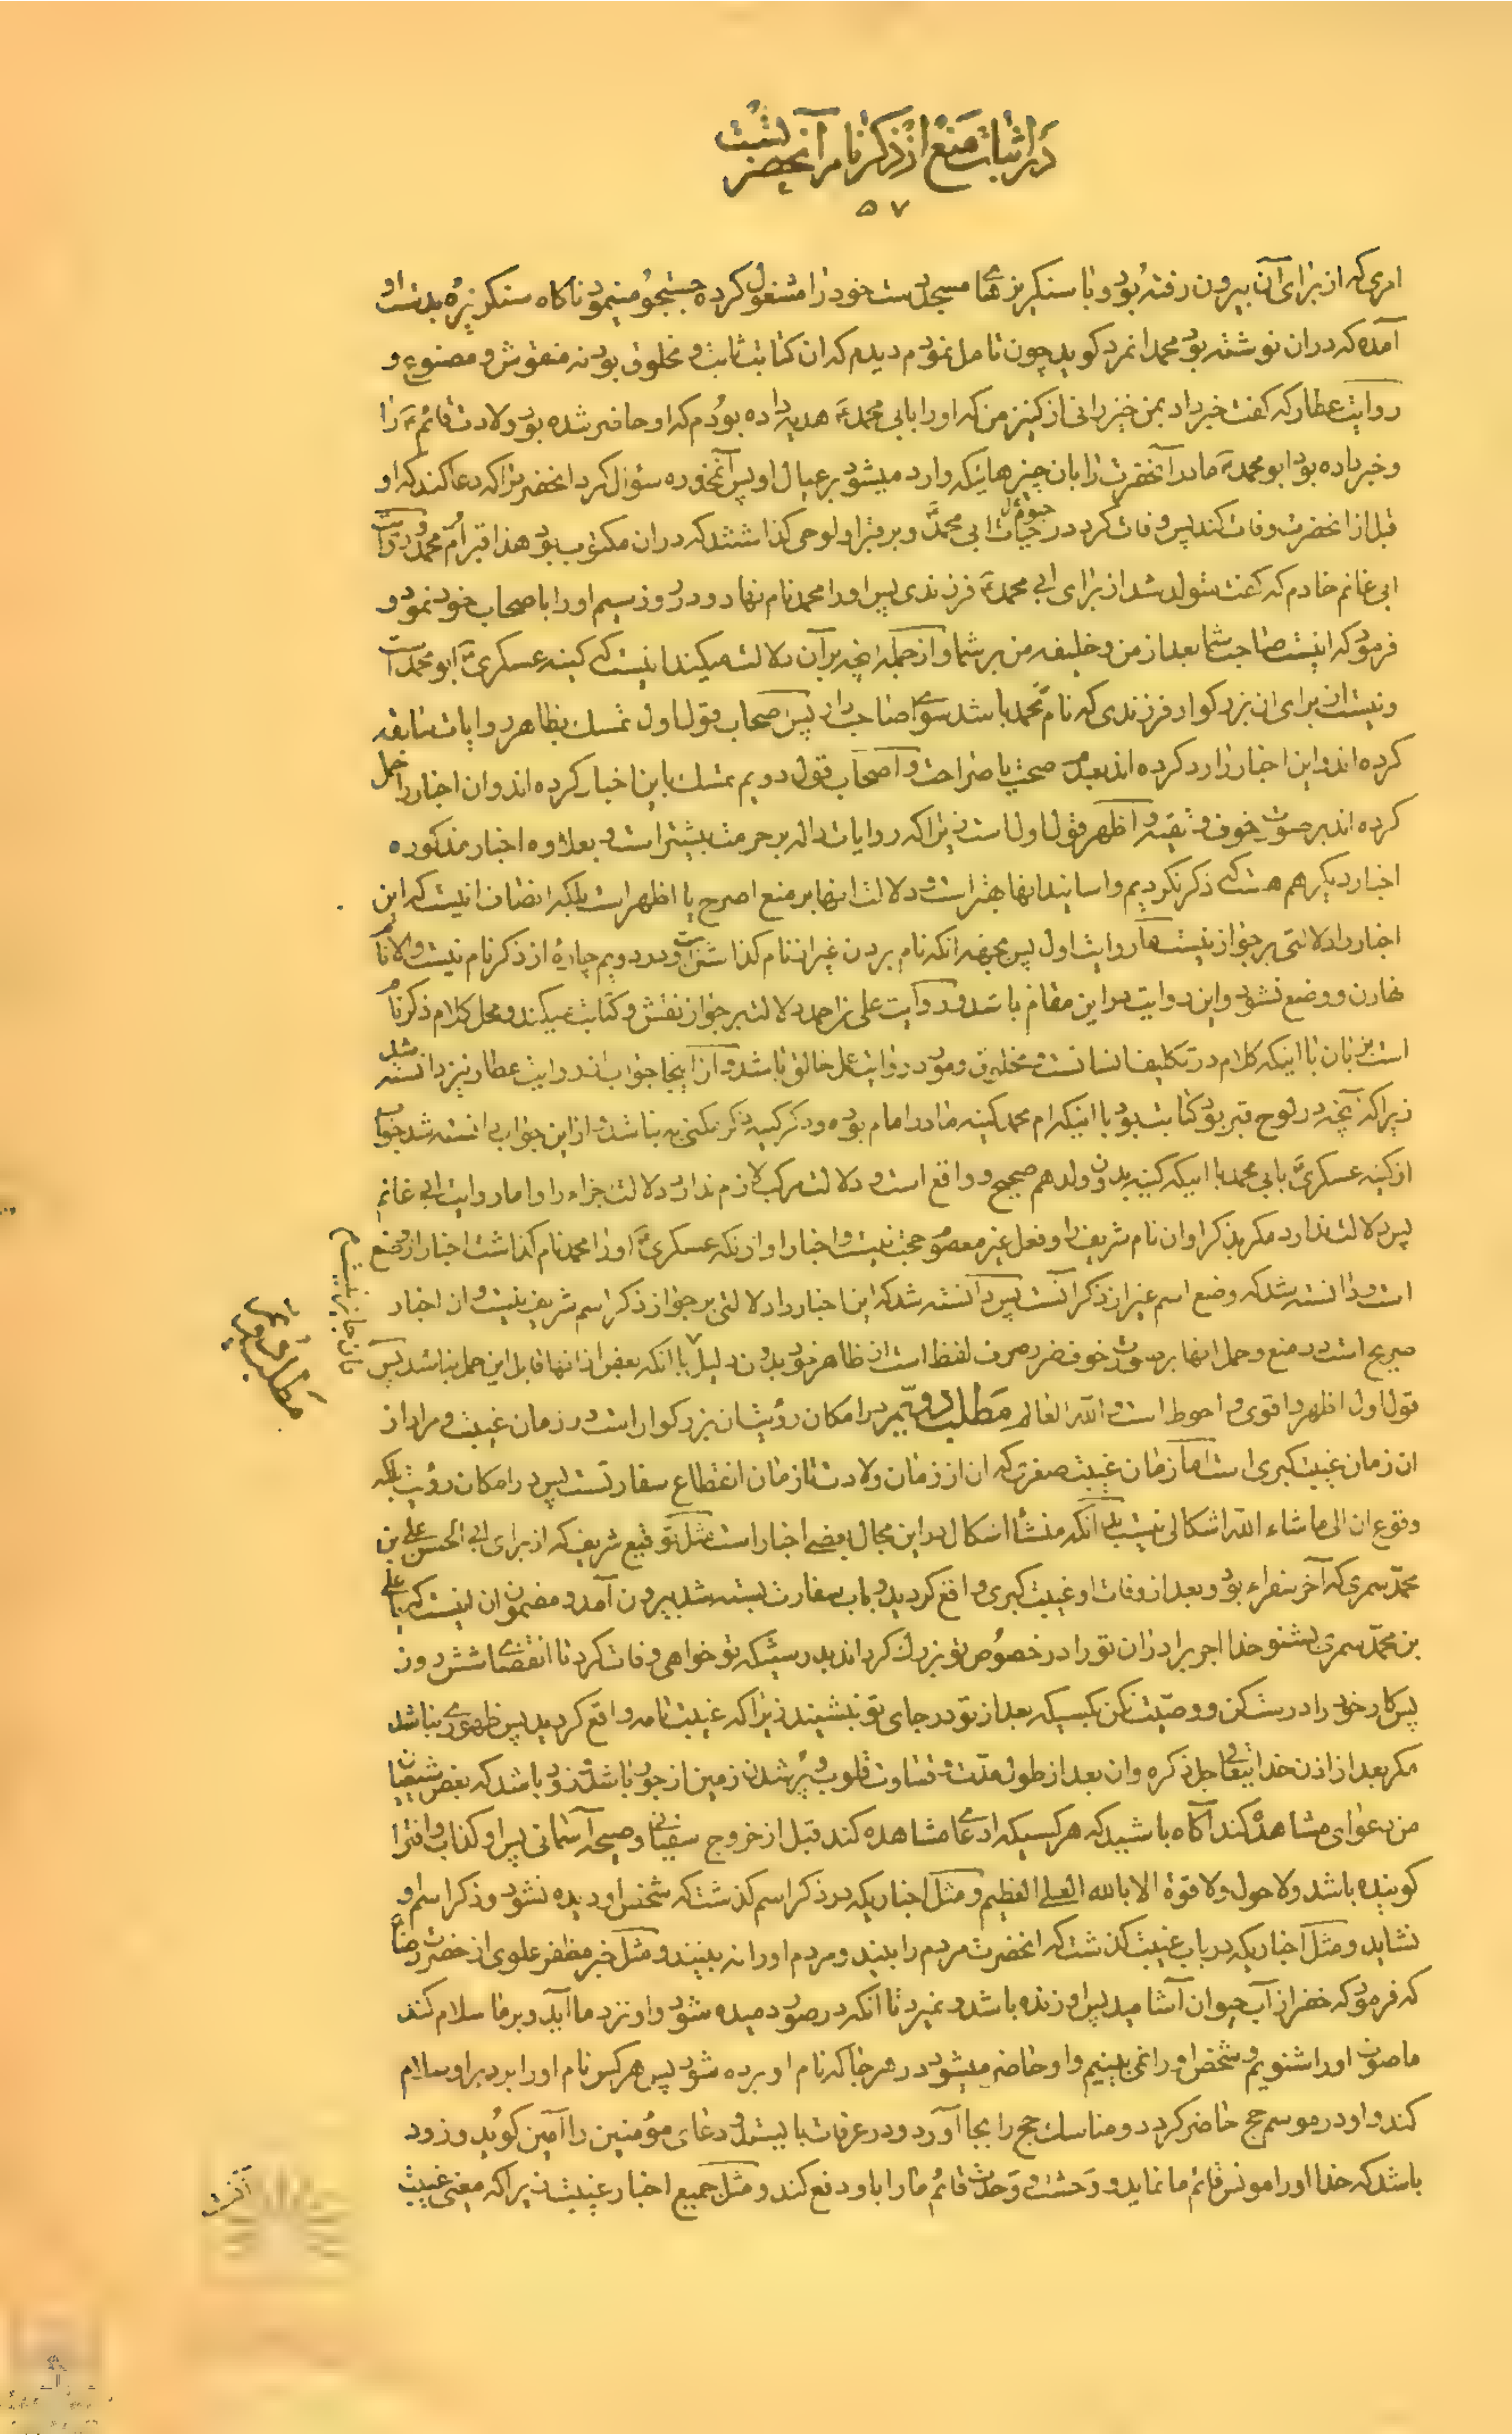 در اثبات منع از ذکر نام آنحضرتست
۵۷
امری که از برای آن بیرون رفته بود و با سنکریزهای مسجد دست خود را مشغول کرده جستجو مینمود ناکاه سنکریزه بدست او
آمده که در ان نوشته بود محمد انمرد کوید چون تامل نمودم دیدم که ان کتابت ثابت و مخلوق بود نه منقوش و مصنوع و
روایت عطار که کفت خبر داد بمن خیزرانی از کنیز من که او را بابی محمدؑ هدیه داده بودم که او حاضر شده بود ولادت قائمؑ را
و خبر داده بود ابو محمدؑ مادر آنحضرت را بان چیزهائیکه وارد میشود بر عیال او پس آنمخدره سؤال کرد انحضرت را که دعا کند که او
قبل از انحضرت وفات کند پس وفات کرد در حیات ابی محمدؑ و بر قبر او لوحی کذاشتند که در ان مکتوب بود هذا قبر ام محمد و روایت
ابی غانم خادم که کفت متولد شد از برای ابی محمدؑ فرزندی پس او را محمد نام نهاد و در روز سیم او را باصحاب خود نمود و
فرمود که اینست صاحب شما بعد از من و خلیفه من بر شما و از جمله انچه بر آن دلالت میکند اینست که کنیه عسکریؑ ابو محمد است
و نیست از برای ان بزرکوار فرزندی که نام محمد باشد سوای صاحب دار پس اصحاب قول اول تمسک بظاهر روایات سابقه
کرده اند و این اخبار را رد کرده اند بعدم صحت یا صراحت و اصحاب قول دویم تمسک باین اخبار کرده اند و ان اخبار را حمل
کرده اند بر صورت خوف و تقیه و اظهر قول اول است زیرا که روایات داله بر حرمت بیشتر است و بعلاوه اخبار مذکوره
اخبار دیکر هم هست که ذکر نکردیم و اسانید انها بهتر است و دلالت انها بر منع اصرح یا اظهر است بلکه انصاف انیست که این
اخبار را دلالتی بر جواز نیست اما روایت اول پس بجهة انکه نام بردن غیر از نام کذاشتن است و در دویم چارۀ از ذکر نام نیست والا نام
نهادن و وضع نشود و این روایت در این مقام باشد و روایت علی بن احمد دلالت بر جواز نقش و کتابت میکند و محل کلام ذکر نام
است بزبان با اینکه کلام در تکلیف انسانست و مخلوق و مورد روایت عمل خالق باشد و از اینجا جواب از روایت عطار نیز دانسته شد
زیرا که آنچه در لوح قبر بود کتابت بود با اینکه ام محمد کنیه مادر امام بوده و ذکر کنیه ذکر مکنی به نباشد و از این جواب دانسته شد جواب
از کنیه عسکریؑ بابی محمد با اینکه کنیه بدون ولد هم صحیح و واقع است و دلالت مرکب لازم ندارد دلالت جزء را و اما روایت ابی غانم
پس دلالت ندارد مکر بذکر او ان نام شریف را و فعل غیر معصوم حجت نیست و اخبار او از انکه عسکریؑ او را محمد نام کذاشت اخبار از وضع
است و دانسته شد که وضع اسم غیر از ذکر آنست پس دانسته شد که این اخبار را دلالتی بر جواز ذکر اسم شریف نیست و ان اخبار
صریح است در منع و حمل انها بر صورت خوف ضرر صرف لفظ است از ظاهر خود بدون دلیل با انکه بعض از انها قابل این حمل نباشد پس
قول اول اظهر و اقوی و احوط است و الله العالم مطلب دویم در امکان رؤیت ان بزرکوار است در زمان غیبت و مراد از
ان زمان غیبت کبری است اما زمان غیبت صغری که ان از زمان ولادت تا زمان انقطاع سفارتست پس در امکان رؤیت بلکه
وقوع ان الی ما شاء الله اشکالی نیست بلی انکه منشأ اشکال در این مجال بعضی اخبار است مثل توقیع شریف که از برای ابی الحسن علی بن
محمد سمری که آخر سفراء بود و بعد از وفات او غیبت کبری واقع کردید و باب سفارت بسته شد بیرون آمد و مضمون ان اینست که یا علی
بن محمد سمری بشنو خدا اجر برادران تو را در خصوص تو بزرک کرداند بدرستیکه تو خواهی وفات کرد تا انقضای شش روز
پس کار خود را درست کن و وصیت نکن بکسیکه بعد از تو در جای تو بنشیند زیرا که غیبت تامه واقع کردید پس ظهوری نباشد
مکر بعد از اذن خدایتعالی جل ذکره و ان بعد از طول مدت و قساوت قلوب و پر شدن زمین از جور باشد و زود باشد که بعض شیعیان
من دعوای مشاهده کند آکاه باشید که هر کسیکه ادعای مشاهده کند قبل از خروج سفیانی و صیحه آسمانی پس او کذاب و افترا
کوینده باشد ولا حول ولا قوة الا بالله العلی العظیم و مثل اخباریکه در ذکر اسم کذشت که شخص او دیده نشود و ذکر اسم او
نشاید و مثل اخباریکه در باب غیبت کذشت که انحضرت مردم را بیند و مردم او را نه بینند و مثل خبر مظفر علوی از حضرت رضاؑ
که فرمود که خضر از آب حیوان آشامید پس او زنده باشد و نمیرد تا انکه در صور دمیده شود و او نزد ما آید و بر ما سلام کند
ما صوت او را شنویم و شخص او را نمی بینیم و او حاضر میشود در هر جا که نام او برده شود پس هر کس نام او را برد بر او سلام
کند و او در موسم حج حاضر کردد و مناسک حج را بجا آورد و در عرفات بایستد و دعای مؤمنین را آمین کوید و زود
باشد که خدا او را مونس قائم ما نماید و وحشت و وحدت قائم ما را باو دفع کند و مثل جمیع اخبار غیبت زیرا که معنی غیبت
آنست